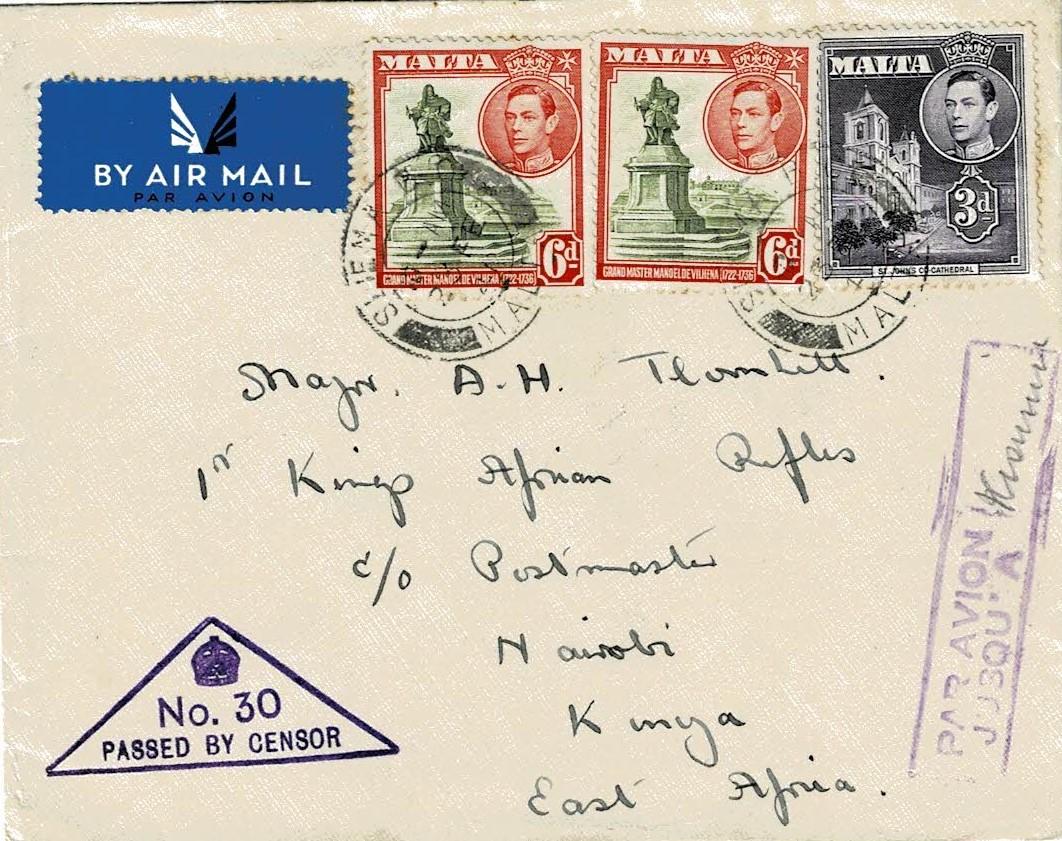 BY AIR MAIL
PAR AVION
MALTA
6d
GRAND MASTER MANOEL DE VILHENA (1722-1736)
MALTA
6d
GRAND MASTER MANOEL DE VILHENA (1722-1736)
MALTA
3d
ST. JOHN'S CO-CATHEDRAL
SLIEMA
MAL
MAL
Major. A.H. Thornhill.
1st Kings African Rifles
c/o Postmaster
Nairobi
Kenya
East Africa.
No. 30
PASSED BY CENSOR
PAR AVION
JUSQU'A